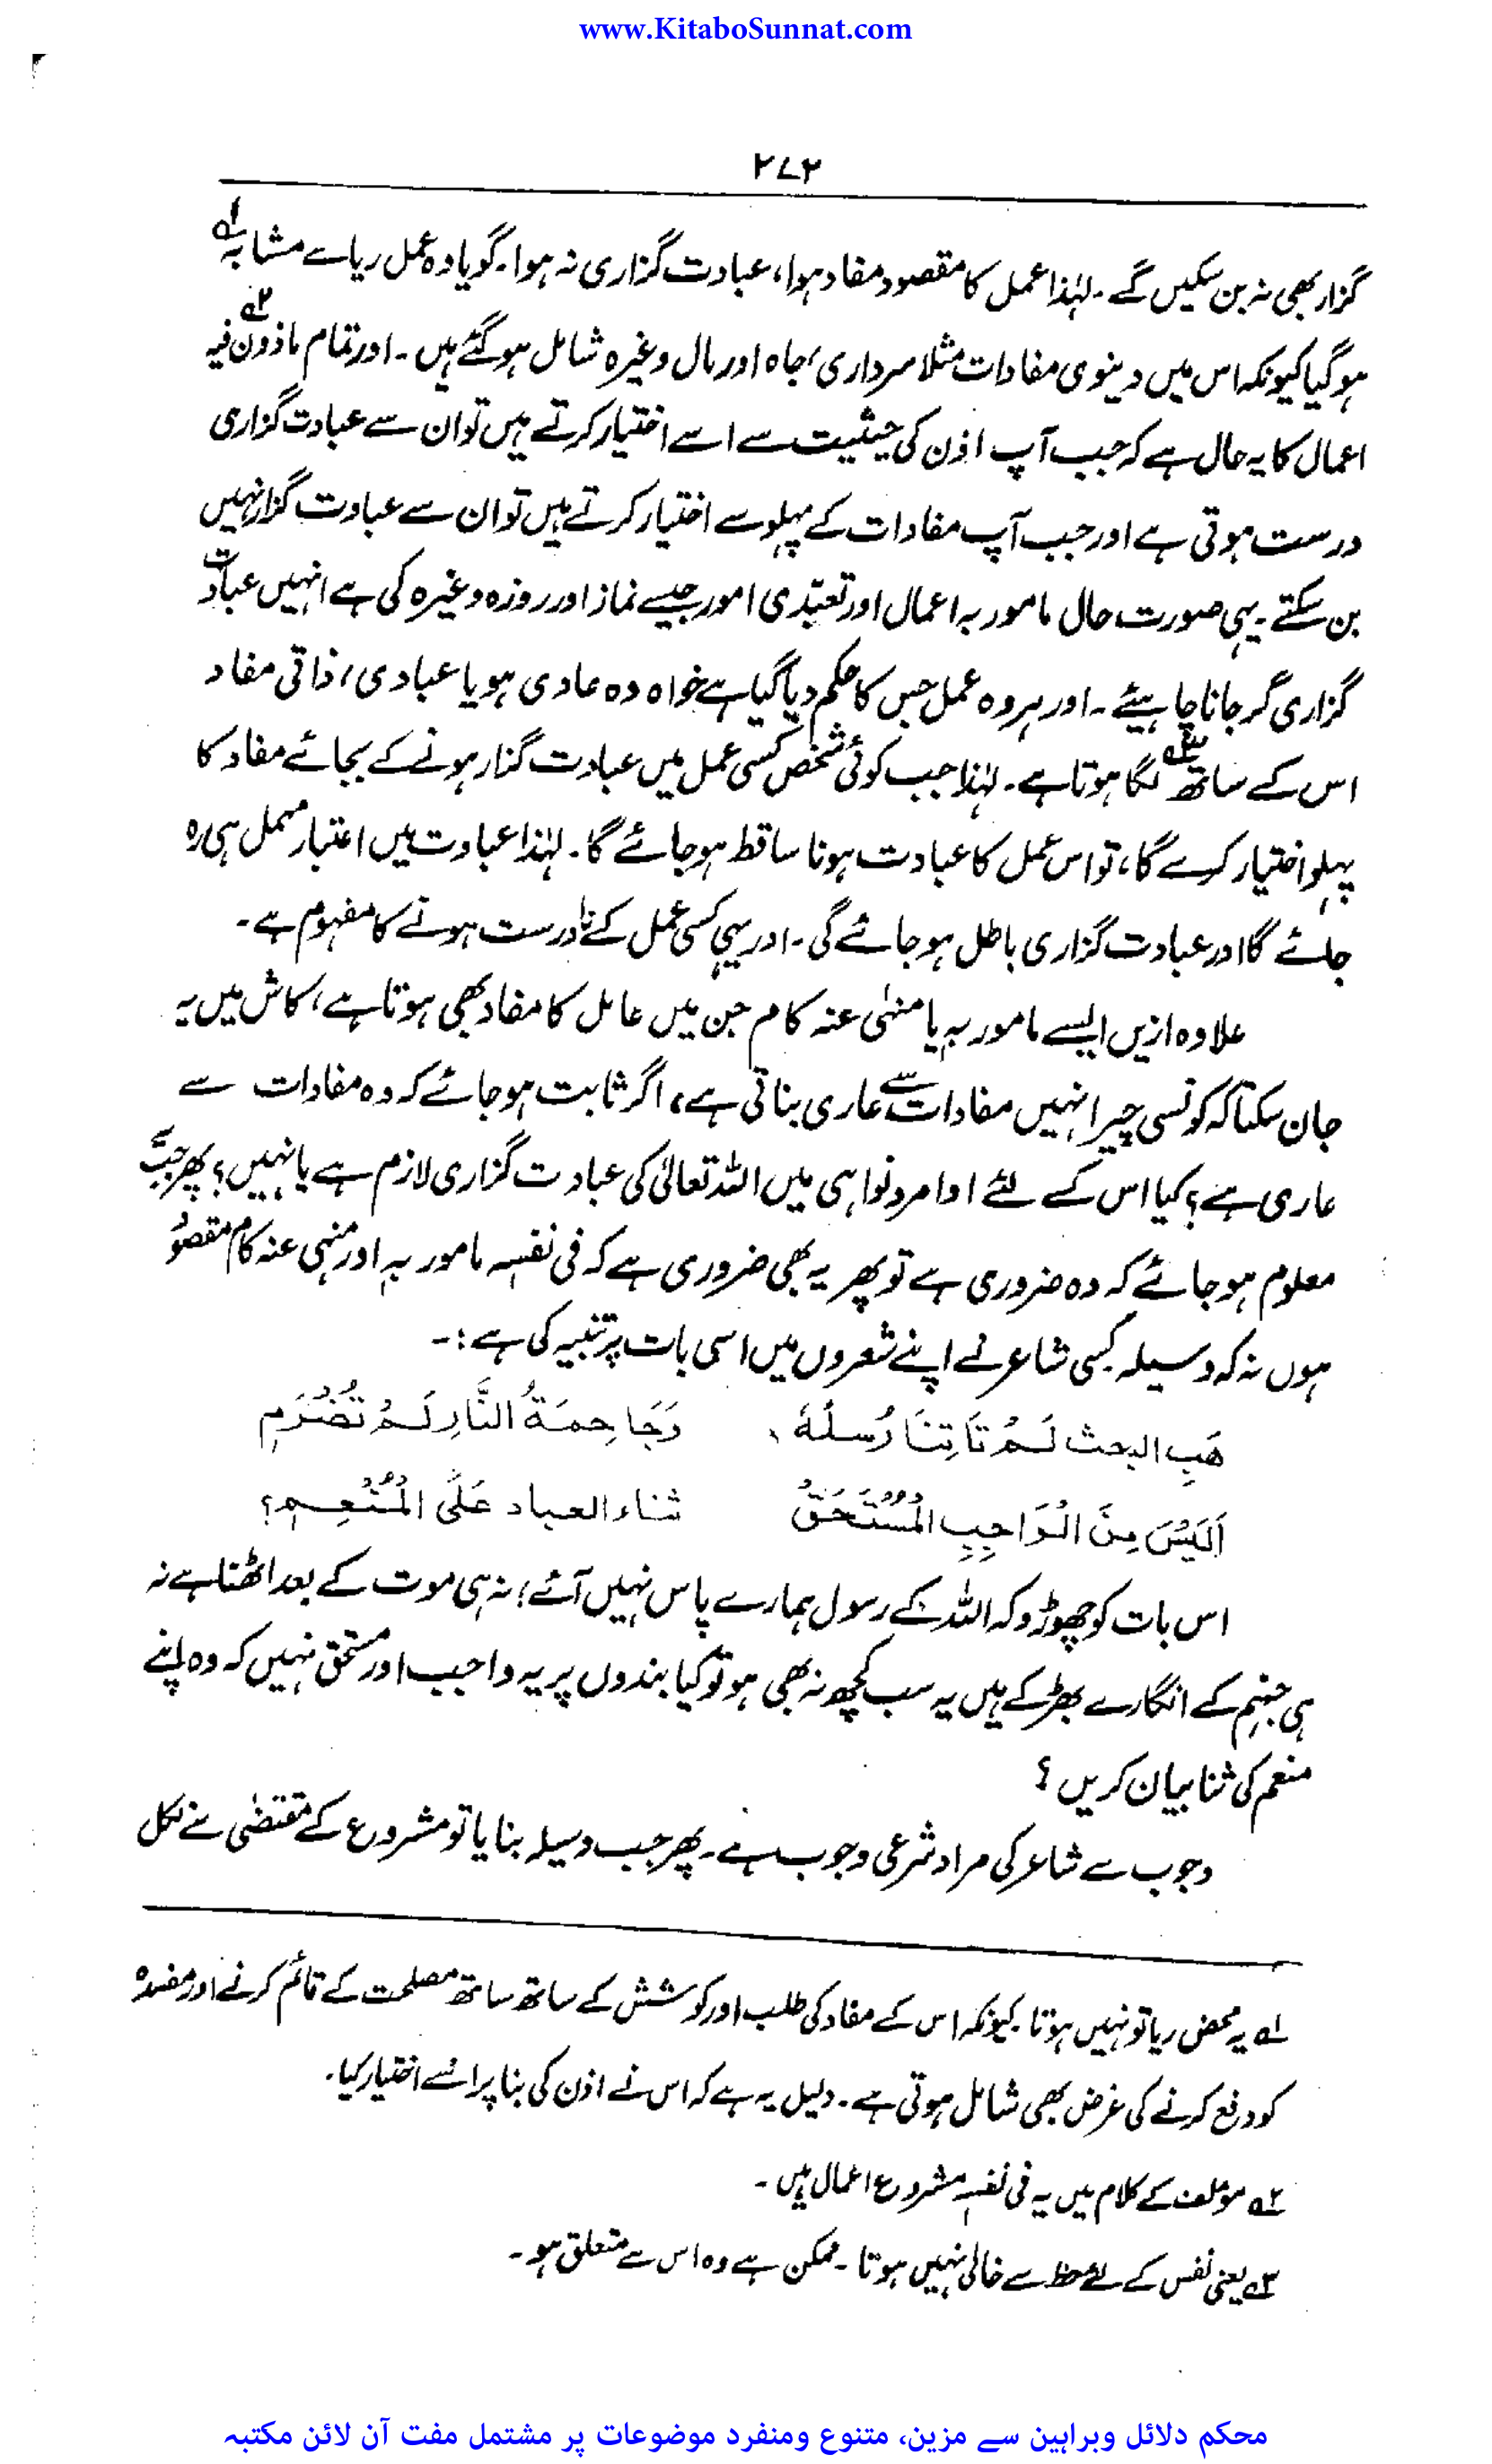 www.KitaboSunnat.com
۲۷۲
گزار بھی نہ بن سکیں گے۔ لہٰذا عمل کا مقصود مفاد ہوا، عبادت گزاری نہ ہوا۔ گویا وہ عمل ریا سے مشابہ لہ
ہو گیا کیونکہ اس میں دینوی مفادات مثلاً سرداری، جاہ اور مال وغیرہ شامل ہو گئے ہیں۔ اور تمام ماذون فیہ ۲ہ
اعمال کا یہ حال ہے کہ جب آپ اذن کی حیثیت سے اسے اختیار کرتے ہیں تو ان سے عبادت گزاری
درست ہوتی ہے اور جب آپ مفادات کے پہلو سے اختیار کرتے ہیں تو ان سے عبادت گزار نہیں
بن سکتے۔ یہی صورت حال مامور بہ اعمال اور تعبّدی امور جیسے نماز اور روزہ وغیرہ کی ہے انہیں عبادت
گزاری گر جانا چاہیئے۔ اور ہر وہ عمل جس کا حکم دیا گیا ہے خواہ وہ عادی ہو یا عبادی، ذاتی مفاد
اس کے ساتھ ۳ہ لگا ہوتا ہے۔ لہٰذا جب کوئی شخص کسی عمل میں عبادت گزار ہونے کے بجائے مفاد کا
پہلو اختیار کرے گا، تو اس عمل کا عبادت ہونا ساقط ہو جائے گا۔ لہٰذا عبادت میں اعتبار مہمل ہی رہ
جائے گا اور عبادت گزاری باطل ہو جائے گی۔ اور یہی کسی عمل کے نادرست ہونے کا مفہوم ہے۔
علاوہ ازیں ایسے مامور بہ یا منہٰی عنہ کام جن میں عامل کا مفاد بھی ہوتا ہے، کاش میں یہ
جان سکتا کہ کونسی چیز انہیں مفادات سے عاری بناتی ہے، اگر ثابت ہو جائے کہ وہ مفادات سے
عاری ہے؟ کیا اس کے لئے اوامر و نواہی میں اللہ تعالیٰ کی عبادت گزاری لازم ہے یا نہیں؟ پھر جب
معلوم ہو جائے کہ وہ ضروری ہے تو پھر یہ بھی ضروری ہے کہ فی نفسہ مامور بہ اور منہی عنہ کام مقصود
ہوں نہ کہ وسیلہ کسی شاعر نے اپنے شعروں میں اسی بات پر تنبیہ کی ہے:۔
هَبِ البعث لَمْ تَاتِنَا رُسلُهٗ ، وَجَاحِمَةُ النَّارِ لَمْ تُضْرَمِ
اَلَيْسَ مِنَ الْوَاجِبِ الْمُسْتَحَقّ ثناء العباد عَلَى الْمُنْعِمِ؟
اس بات کو چھوڑو کہ اللہ کے رسول ہمارے پاس نہیں آئے؛ نہ ہی موت کے بعد اٹھنا ہے نہ
ہی جہنم کے انگارے بھڑکے ہیں یہ سب کچھ نہ بھی ہو تو کیا بندوں پر یہ واجب اور مستحق نہیں کہ وہ اپنے
منعم کی ثنا بیان کریں؟
وجوب سے شاعر کی مراد شرعی وجوب ہے۔ پھر جب وسیلہ بنایا تو مشروع کے مقتضٰی سے نکل
۱ہ یہ محض ریا تو نہیں ہوتا۔ کیونکہ اس کے مفاد کی طلب اور کوشش کے ساتھ ساتھ مصلحت کے قائم کرنے اور مفسدہ
کو دفع کرنے کی غرض بھی شامل ہوتی ہے۔ دلیل یہ ہے کہ اس نے اذن کی بنا پر اسے اختیار کیا۔
۲ہ مؤلف کے کلام میں یہ فی نفسہٖ مشروع اعمال ہیں۔
۳ہ یعنی نفس کے لئے حظ سے خالی نہیں ہوتا۔ ممکن ہے وہ اس سے متعلق ہو۔
محکم دلائل وبراہین سے مزین، متنوع ومنفرد موضوعات پر مشتمل مفت آن لائن مکتبہ